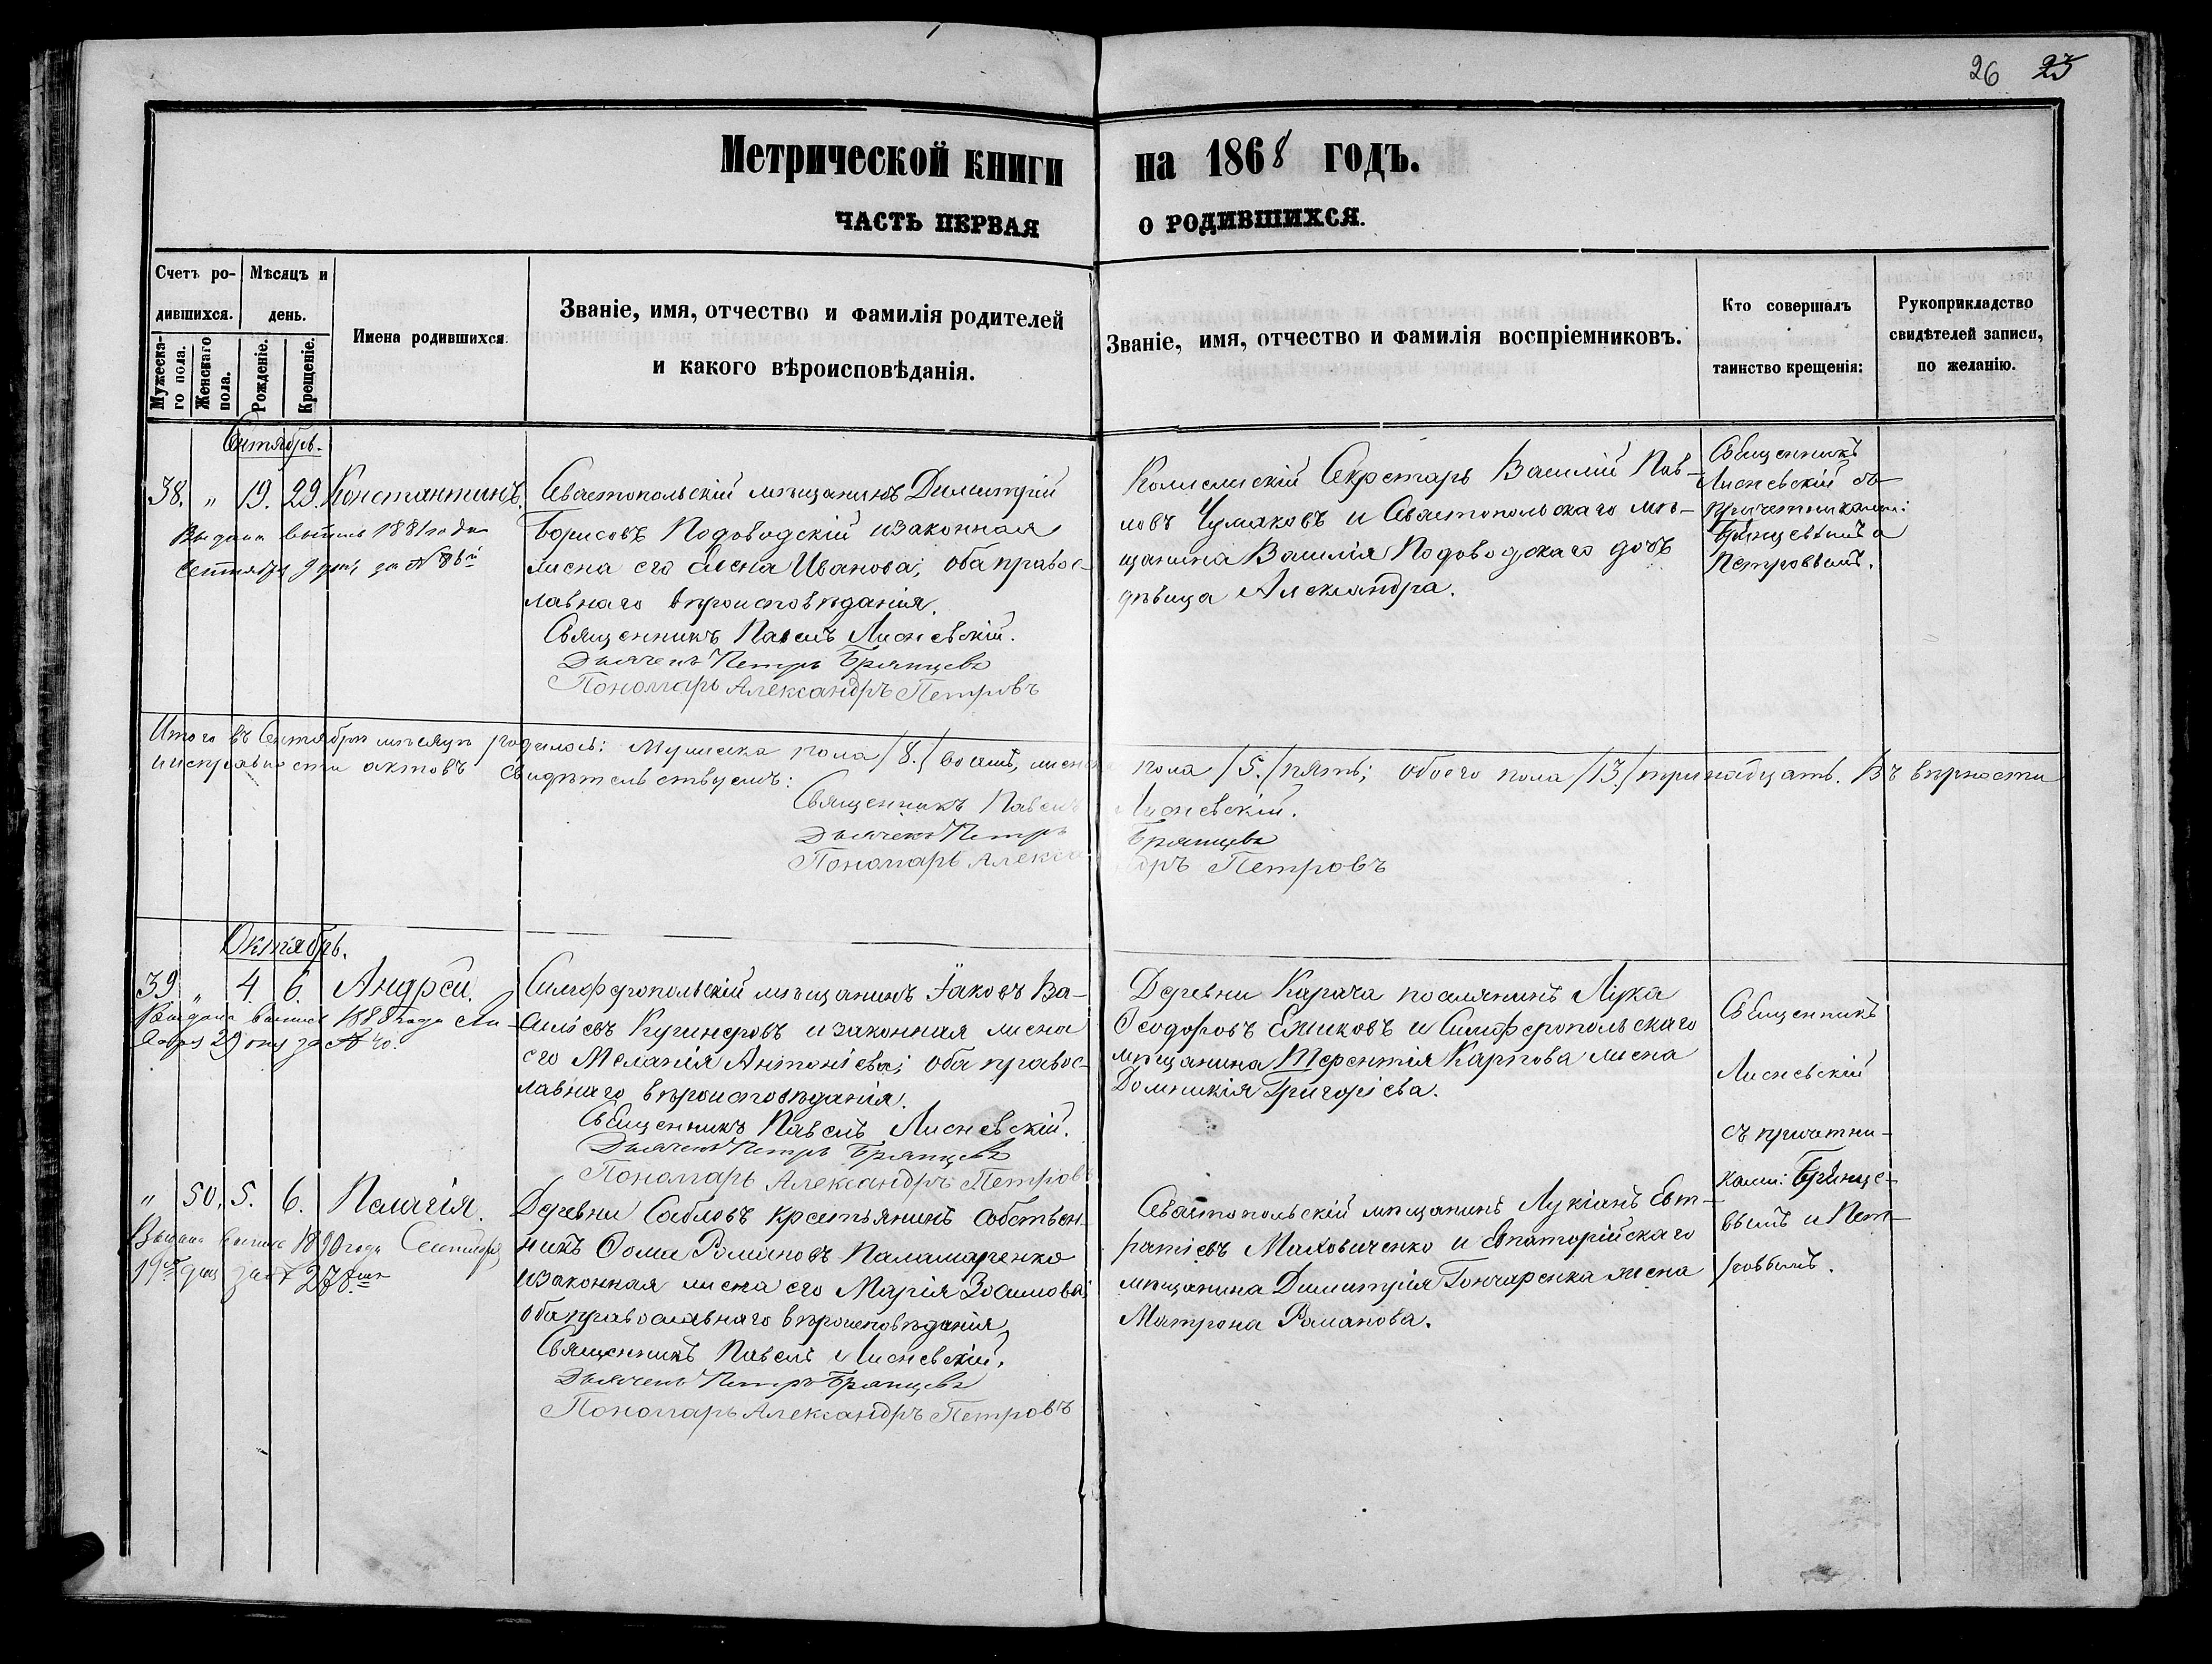 26 25
Метрической книги на 1868 годъ.
ЧАСТЬ ПЕРВАЯ О РОДИВШИХСЯ.
Счетъ ро-
дившихся.
Мужеска-
го пола.
Женскаго
пола.
Мѣсяцъ и
день.
Рожденіе.
Крещеніе.
Имена родившихся.
Званіе, имя, отчество и фамилія родителей
и какого вѣроисповѣданія.
Званіе, имя, отчество и фамилія воспріемниковъ.
Кто совершалъ
таинство крещенія:
Рукоприкладство
свидѣтелей записи,
по желанію.
Сентябрь.
38. " 19. 29. Константинъ.
Выдана выпись 1881 года
Сентября 9 дня за №
Севастопольскій мѣщанинъ Димитрій
Борисовъ Подоводскій и законная
жена его Елена Иванова; оба правос-
лавнаго вѣроисповѣданія.
Священникъ Павелъ Лисневскій.
Дьячекъ Петръ Брянцевъ
Пономарь Александръ Петровъ
Коллежскій Секретарь Василій Пав-
ловъ Чумаковъ и Севастопольскаго мѣ-
щанина Василія Подоводскаго дочь
дѣвица Александра.
Священникъ
Лисневскій съ
причетниками:
Брянцевымъ и
Петровымъ.
Итого въ Сентябрѣ мѣсяцѣ родилось: Мужеска пола /8./ восемь, женска пола /5./ пять; обоего пола /13./ тринадцать. Въ вѣрности
и исправности актовъ свидѣтельствуемъ:
Священникъ Павелъ Лисневскій.
Дьячекъ Петръ Брянцевъ
Пономарь Александръ Петровъ
Октябрь.
39 " 4. 6. Андрей.
Выдана выпись 1888 года
29 дня за № 40.
Симферопольскій мѣщанинъ Іаковъ Ва-
силіевъ Кугинеровъ и законная жена
его Меланія Антоніева; оба правос-
лавнаго вѣроисповѣданія.
Священникъ Павелъ Лисневскій.
Дьячекъ Петръ Брянцевъ
Пономарь Александръ Петровъ
Деревни Карача поселянинъ Лука
Ѳеодоровъ Ежиковъ и Симферопольскаго
мѣщанина Терентія Карпова жена
Домникія Григоріева.
Священникъ
Лисневскій
съ причетни-
ками: Брянце-
вымъ и Пет-
ровымъ.
" 50. 5. 6. Пелагія.
Выдана выпись 1890 года Сентября
19го дня за № 278.
Деревни Сабловъ крестьянинъ собствен-
никъ Ѳома Романовъ Паламаренко
и законная жена его Марія Зосимова;
оба православнаго вѣроисповѣданія,
Священникъ Павелъ Лисневскій.
Дьячекъ Петръ Брянцевъ
Пономарь Александръ Петровъ
Севастопольскій мѣщанинъ Лукіанъ Евт-
ратіевъ Маховиченко и Евпаторійскаго
мѣщанина Димитрія Гончаренка жена
Матрона Романова.